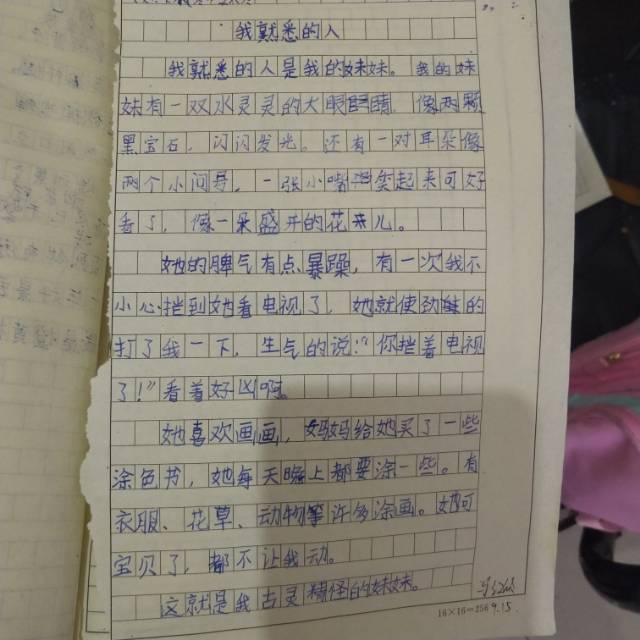 我就悉的人
我就悉的人是我的妹妹。我的妹
妹有一双水灵灵的大眼睛，像两颗
黑宝石，闪闪发光。还有一对耳朵像
两个小问号，一张小嘴笑起来可好
看了，像一朵盛开的花儿。
她的脾气有点暴躁，有一次我不
小心挡到她看电视了，她就使劲的
打了我一下，生气的说：“你挡着电视
了！”看着好凶啊。
她喜欢画画，妈妈给她买了一些
涂色书，她每天晚上都要涂一些。有
衣服、花草、动物等许多涂画。她可
宝贝了，都不让我动。
这就是我古灵精怪的妹妹。
16×16=256 9.15